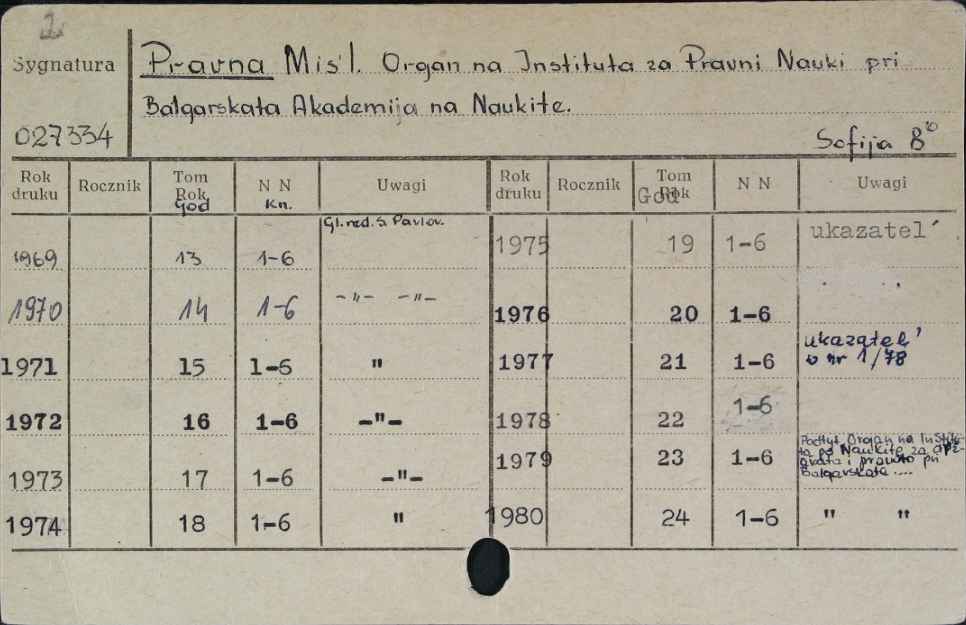 2.
Sygnatura
Pravna Mis'l. Organ na Instituta za Pravni Nauki pri
Bălgarskata Akademija na Naukite.
027334
Sofija 8°
Rok druku Rocznik Tom Rok God N N Kn. Uwagi Rok druku Rocznik Tom Rok God N N Uwagi
1969 13 1-6 Gl. red. S. Pavlov.
1970 14 1-6 -"- -"-
1971 15 1-6 "
1972 16 1-6 -"-
1973 17 1-6 -"-
1974 18 1-6 "
1975 19 1-6 ukazatel'
1976 20 1-6
1977 21 1-6 ukazatel'
v nr 1/78
1978 22 1-6
1979 23 1-6 Podtyt. Organ na Institu-
ta po Naukite za dŭr-
gvata i prawto pri
Balgarskata ....
1980 24 1-6 " "